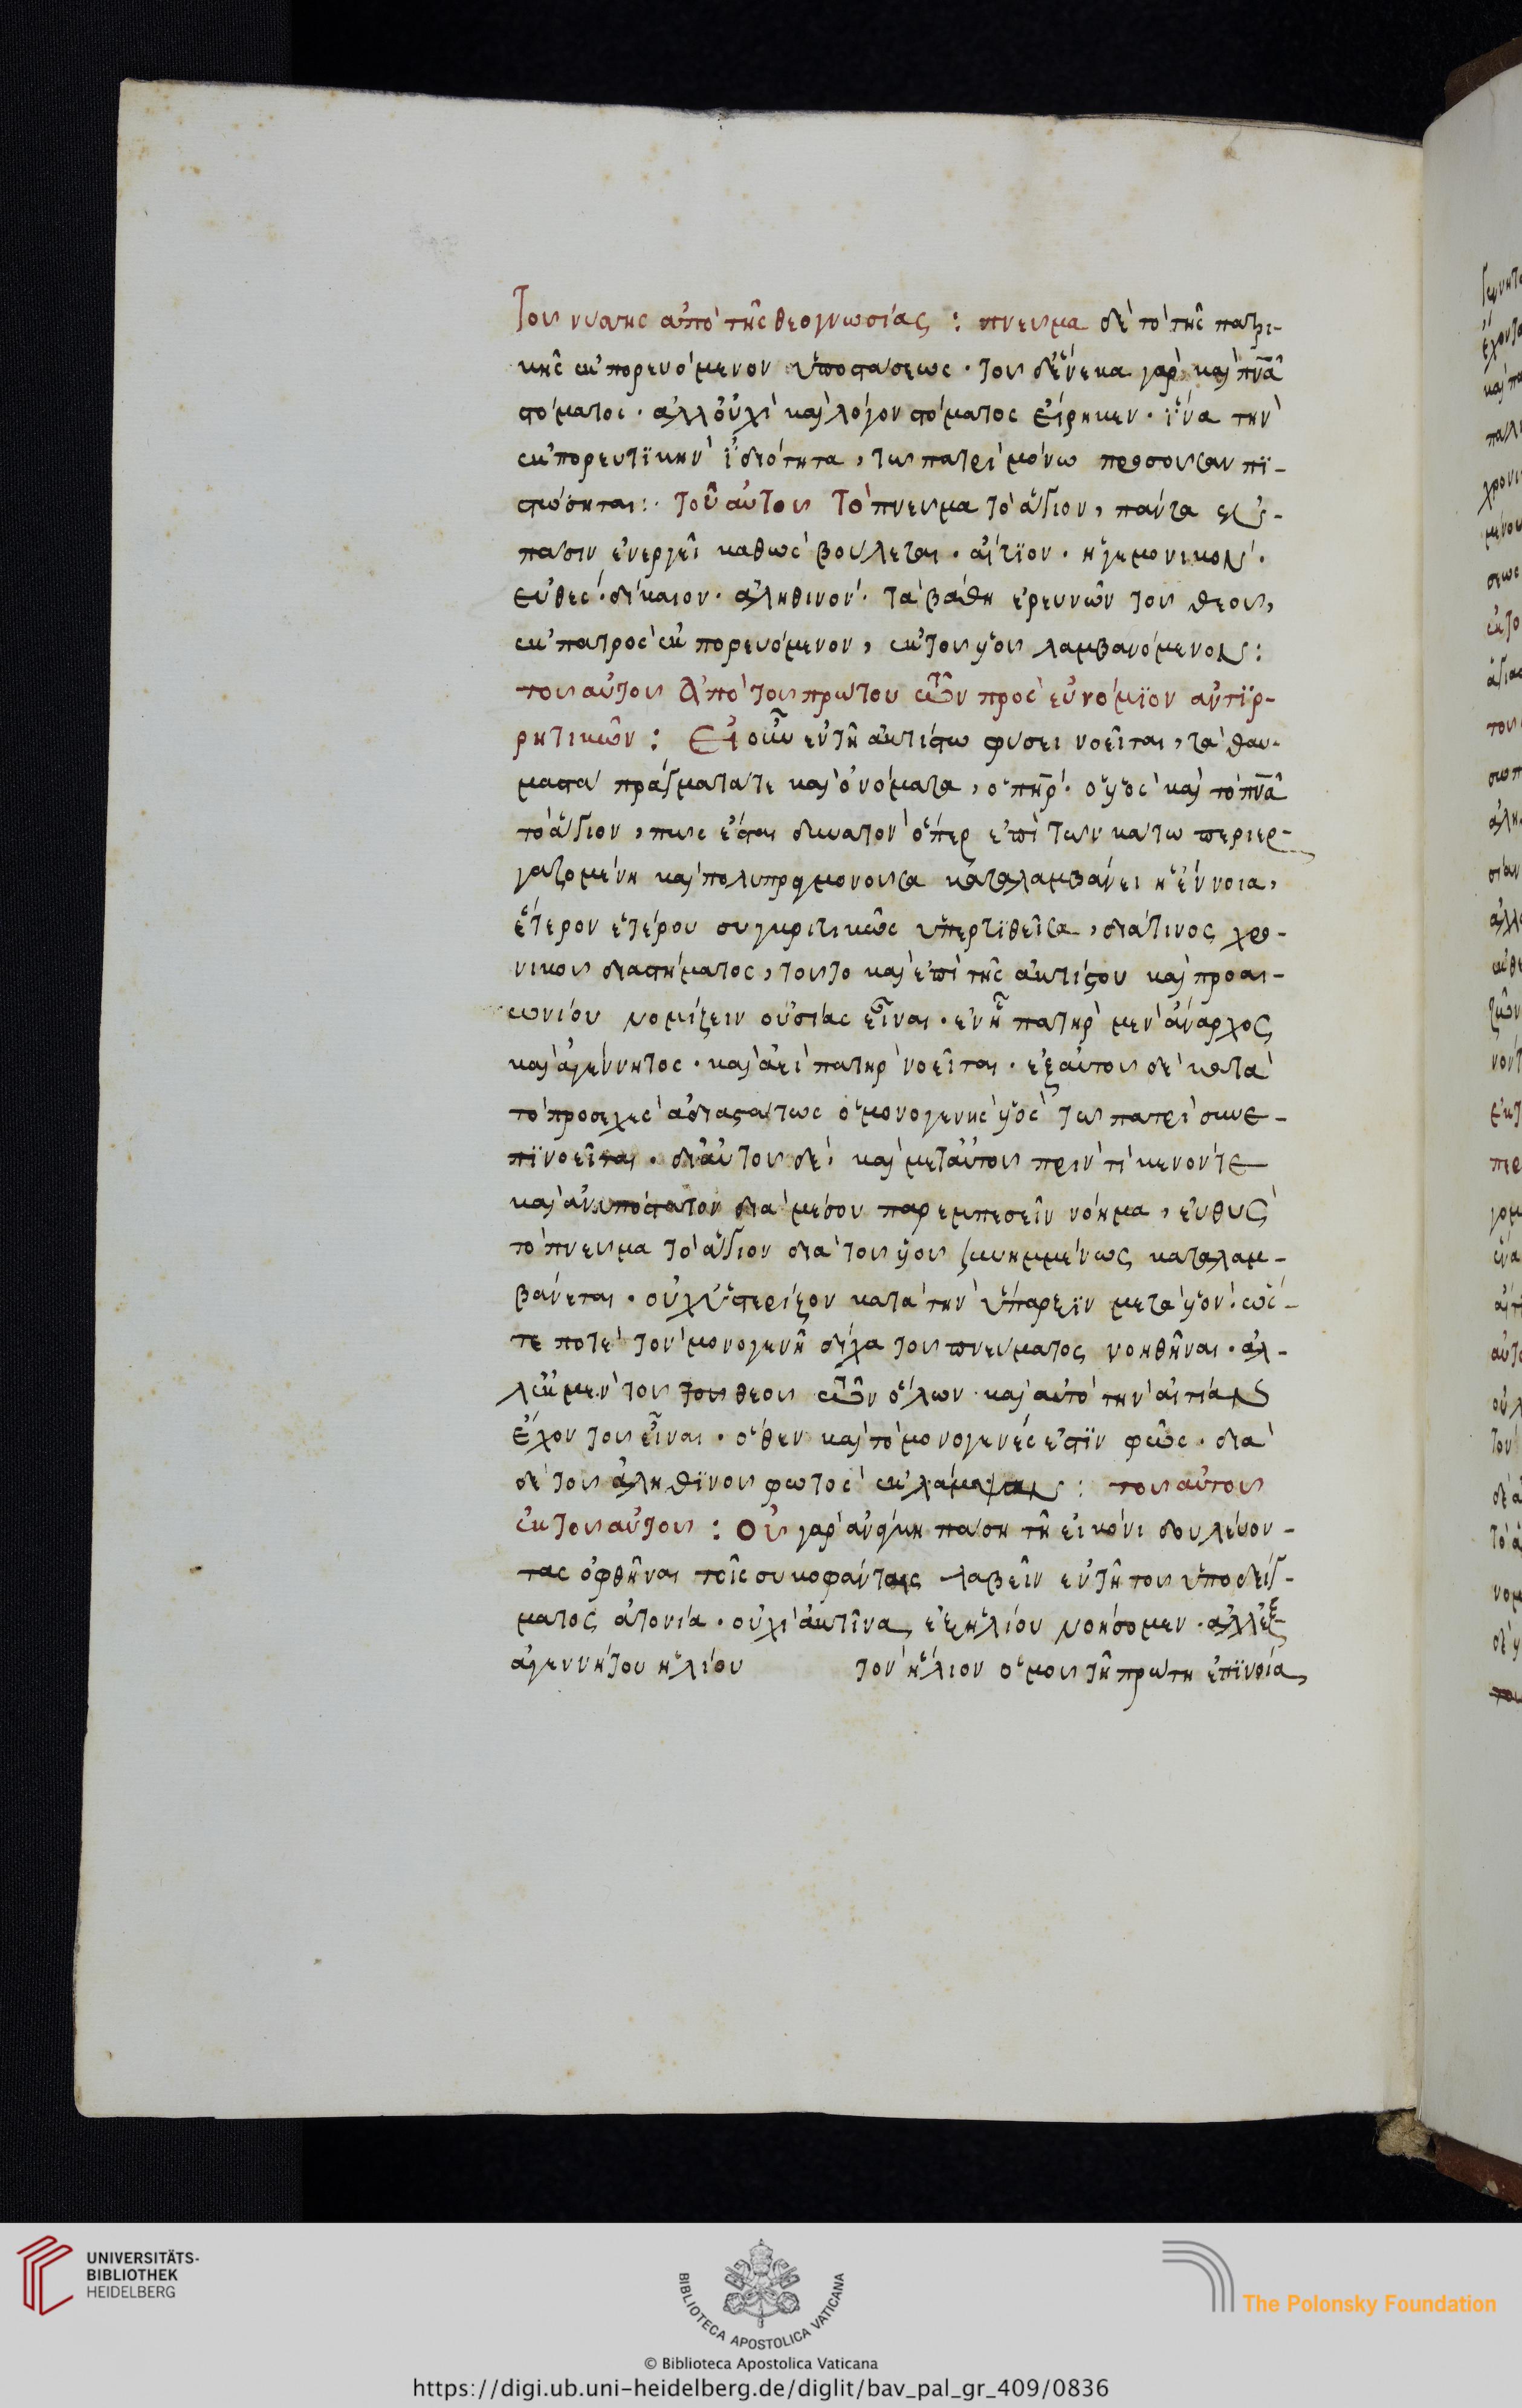 Του νύσης ἀπὸ τῆς θεογνωσίας : πνευμα δὲ τὸ τῆς πατρι-
κῆς ἐκπορευόμενον ὑποστάσεως · του δἕνεκα γὰρ καὶ πν̅α̅
στόματος · ἀλλοὐχὶ καὶ λόγον στόματος εἴρηκεν · ἵνα τὴν
ἐκπορευτϊκὴν ἰδιότητα, τω πατρὶ μόνω προσουσαν πϊ-
στώσηται : τοῦ αὐτου Τὸ πνευμα τὸ ἀΐδιον, πάντα ἐν
πασιν ἐνεργεῖ καθὼς βούλεται · αἴτϊον · ἡγεμονικὸν ·
εὐθὲς · δίκαιον · ἀληθινὸν · τὰ βάθη ἐρευνῶν του θεου,
ἐκ πατρὸς ἐκπορευόμενον, ἐκ του ὑου λαμβανόμενον :
του αὐτου Ἀπὸ του πρώτου τῶν πρὸς εὐνόμϊον ἀντϊρ-
ρητικῶν : Εἰ οὖν ἐν τῆ ἀκτίστω φύσει νοεῖται, τὰ θαυ-
μαστὰ πράγματά τε καὶ ὀνόματα, ὁ πη̅ρ̅ · ὁ ὑὸς καὶ τὸ πν̅α̅
τὸ ἀΐδιον, πως ἔσται δυνατὸν ὅπερ ἐπὶ των κάτω περιερ-
γαζομένη καὶ πολυπραγμονουσα καταλαμβάνει ἡ ἔννοια,
ἕτερον ἑτέρου συγκριτικῶς ὑπερτϊθεῖσα, διά τινος χρο-
νικου διαστήματος, τουτο καὶ ἐπὶ τῆς ἀκτίστου καὶ προαι-
ωνίου νομίζειν οὐσίας εἶναι · ἐν ἧ πατὴρ μὲν ἄναρχος
καὶ ἀγέννητος · καὶ ἀεὶ πατὴρ νοεῖται · ἐξ αὐτου δὲ κατὰ
τὸ προσεχὲς ἀδιαστάτως ὁ μονογενὴς ὑὸς τω πατρὶ συνε-
πϊνοεῖται · δι αὐτου δὲ καὶ μεταὐτου πρὶν τὶ κενόν τε
καὶ ἀνυπόστατον διὰ μέσου παρεμπεσεῖν νόημα, εὐθὺς
τὸ πνευμα τὸ ἀΐδιον διὰ του ὑου συνημμένως καταλαμ-
βάνεται · οὐχ ὑστερίζον κατὰ τὴν ὕπαρξϊν μετὰ ὑὸν · ὥς-
τε ποτὲ τὸν μονογενῆ δίχα του πνεύματος νοηθῆναι · ἀλ-
λἐκ μὲν του του θεου τῶν ὅλων · καὶ αὐτὸ τὴν αἰτίαν
ἔχον του εἶναι · ὅθεν καὶ τὸ μονογενές ἐστϊν φῶς · διὰ
δὲ του ἀληθϊνου φωτὸς ἐκλάμψαν : του αὐτου
ἐκ του αὐτου : Οὐ γὰρ ἀνάγκη πάση τῆ εἰκόνι δουλέυον-
τας ὀφθῆναι τοῖς συκοφάνταις λαβεῖν ἐν τῆ του ὑποδείγ-
ματος ἀτονία · οὐχὶ ἀκτῖνα ἐξ ἡλίου νοήσομεν · ἀλλἐξ
ἀγεννήτου ἡλίου τὸν ἥλιον ὁμου τῆ πρώτη ἐπϊνοία,
UNIVERSITÄTS-
BIBLIOTHEK
HEIDELBERG
BIBLIOTECA APOSTOLICA VATICANA
The Polonsky Foundation
© Biblioteca Apostolica Vaticana
https://digi.ub.uni-heidelberg.de/diglit/bav_pal_gr_409/0836